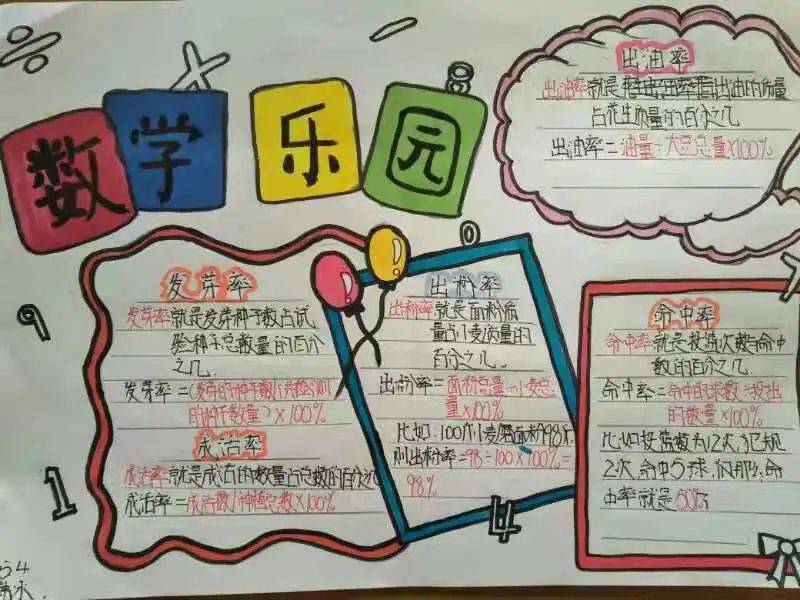 数学乐园
出油率
出油率就是
出油的质量
占花生质量的百分之几
出油率=油量÷大豆总量×100%
发芽率
发芽率就是发芽种子数占试
验种子总数量的百分
之几
发芽率=(发芽的种子数/共检测
的种子数量)×100%
成活率
成活率就是成活的数量占总数的百分之几
成活率=成活数/种植总数×100%
出粉率
出粉率就是面粉质
量占小麦质量的
百分之几
出粉率=面粉总量÷小麦总
量×100%
比如:100斤小麦磨面粉98斤
则出粉率=98÷100×100%=
98%
命中率
命中率就是投篮次数与命中
数的百分之几
命中率=命中的球数÷投出
的数量×100%
比如投篮数为12次,犯规
2次,命中5球,
命
中率就是50%
9
1
0
8
4
54